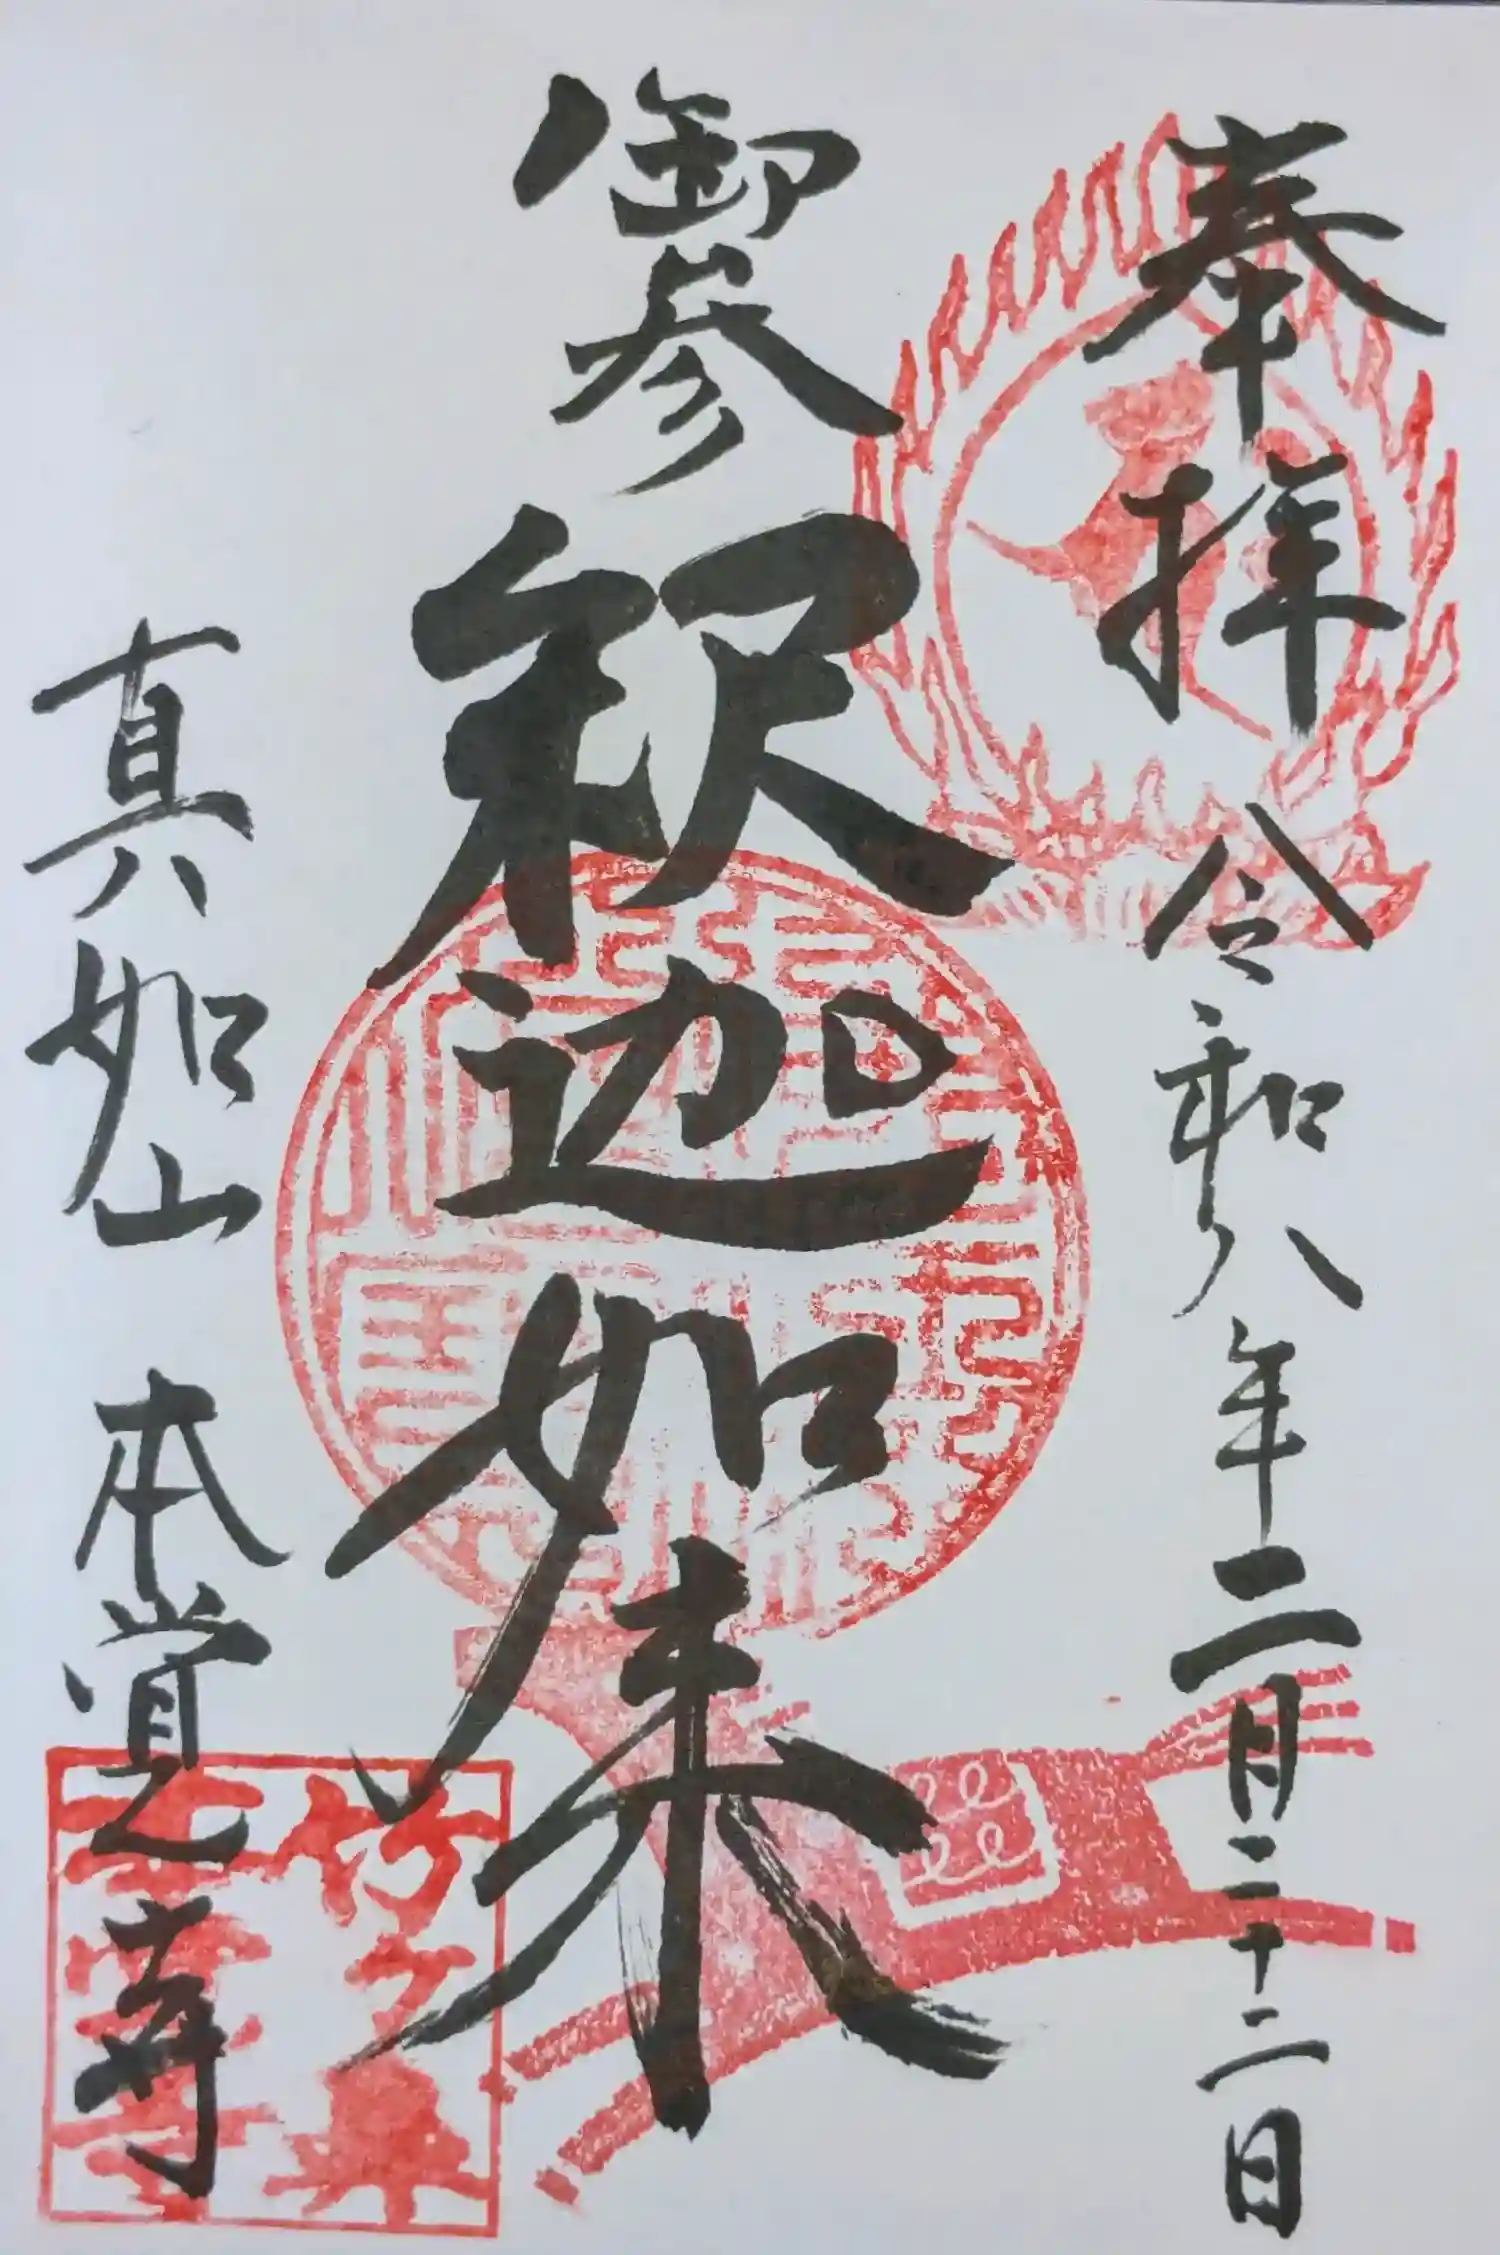 奉拝 令和八年二月二十二日
御参 釈迦如来
真如山 本覚寺